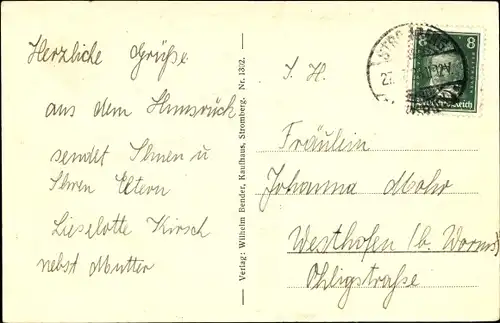 Herzliche Grüße
aus dem Hunsrück
sendet Ihnen u
Ihren Eltern
Lieselotte Kirsch
nebst Mutter
Verlag: Wilhelm Bender, Kaufhaus, Stromberg. Nr. 1302.
8
S. H.
Fräulein
Johanna Mohr
Westhofen (b. Worms)
Ohligstraße